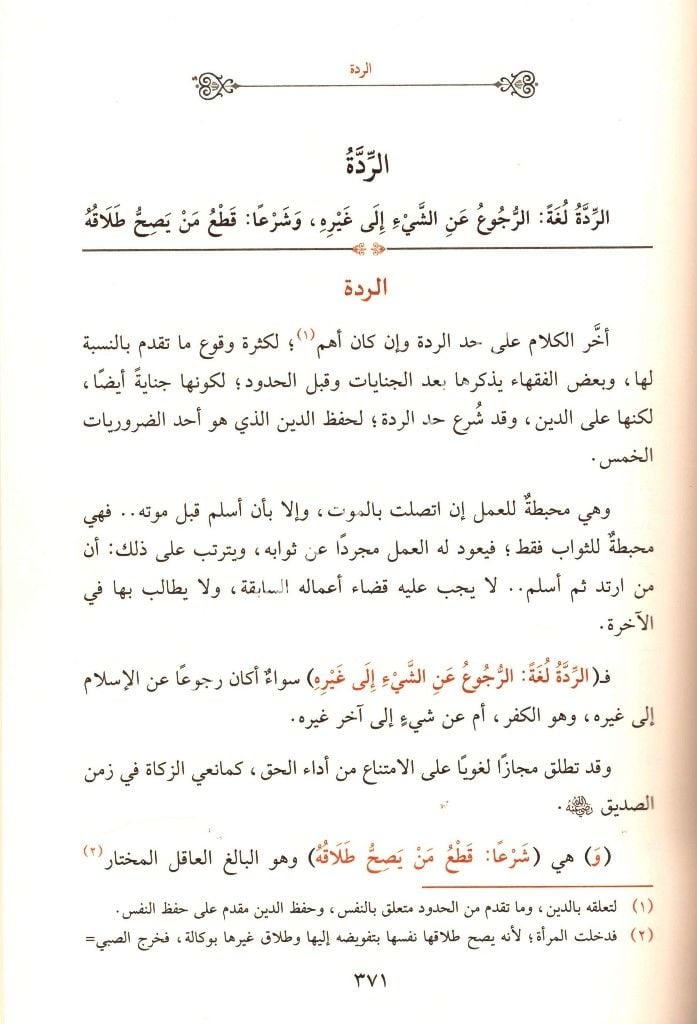 الردة
الرِّدَّةُ
الرِّدَّةُ لُغَةً: الرُّجُوعُ عَنِ الشَّيْءِ إِلَى غَيْرِهِ، وَشَرْعًا: قَطْعُ مَنْ يَصِحُّ طَلَاقُهُ
الردة
أخَّر الكلام على حد الردة وإن كان أهم(١)؛ لكثرة وقوع ما تقدم بالنسبة
لها، وبعض الفقهاء يذكرها بعد الجنايات وقبل الحدود؛ لكونها جنايةً أيضًا،
لكنها على الدين، وقد شُرع حد الردة؛ لحفظ الدين الذي هو أحد الضروريات
الخمس.
وهي محبطةٌ للعمل إن اتصلت بالموت، وإلا بأن أسلم قبل موته.. فهي
محبطةٌ للثواب فقط؛ فيعود له العمل مجردًا عن ثوابه، ويترتب على ذلك: أن
من ارتد ثم أسلم.. لا يجب عليه قضاء أعماله السابقة، ولا يطالب بها في
الآخرة.
فـ(الرِّدَّةُ لُغَةً: الرُّجُوعُ عَنِ الشَّيْءِ إِلَى غَيْرِهِ) سواءٌ أكان رجوعًا عن الإسلام
إلى غيره، وهو الكفر، أم عن شيءٍ إلى آخر غيره.
وقد تطلق مجازًا لغويًا على الامتناع من أداء الحق، كمانعي الزكاة في زمن
الصديق رضي الله عنه.
(وَ) هي (شَرْعًا: قَطْعُ مَنْ يَصِحُّ طَلَاقُهُ) وهو البالغ العاقل المختار(٢)
(١) لتعلقه بالدين، وما تقدم من الحدود متعلق بالنفس، وحفظ الدين مقدم على حفظ النفس.
(٢) فدخلت المرأة؛ لأنه يصح طلاقها نفسها بتفويضه إليها وطلاق غيرها بوكالة، فخرج الصبي=
٣٧١